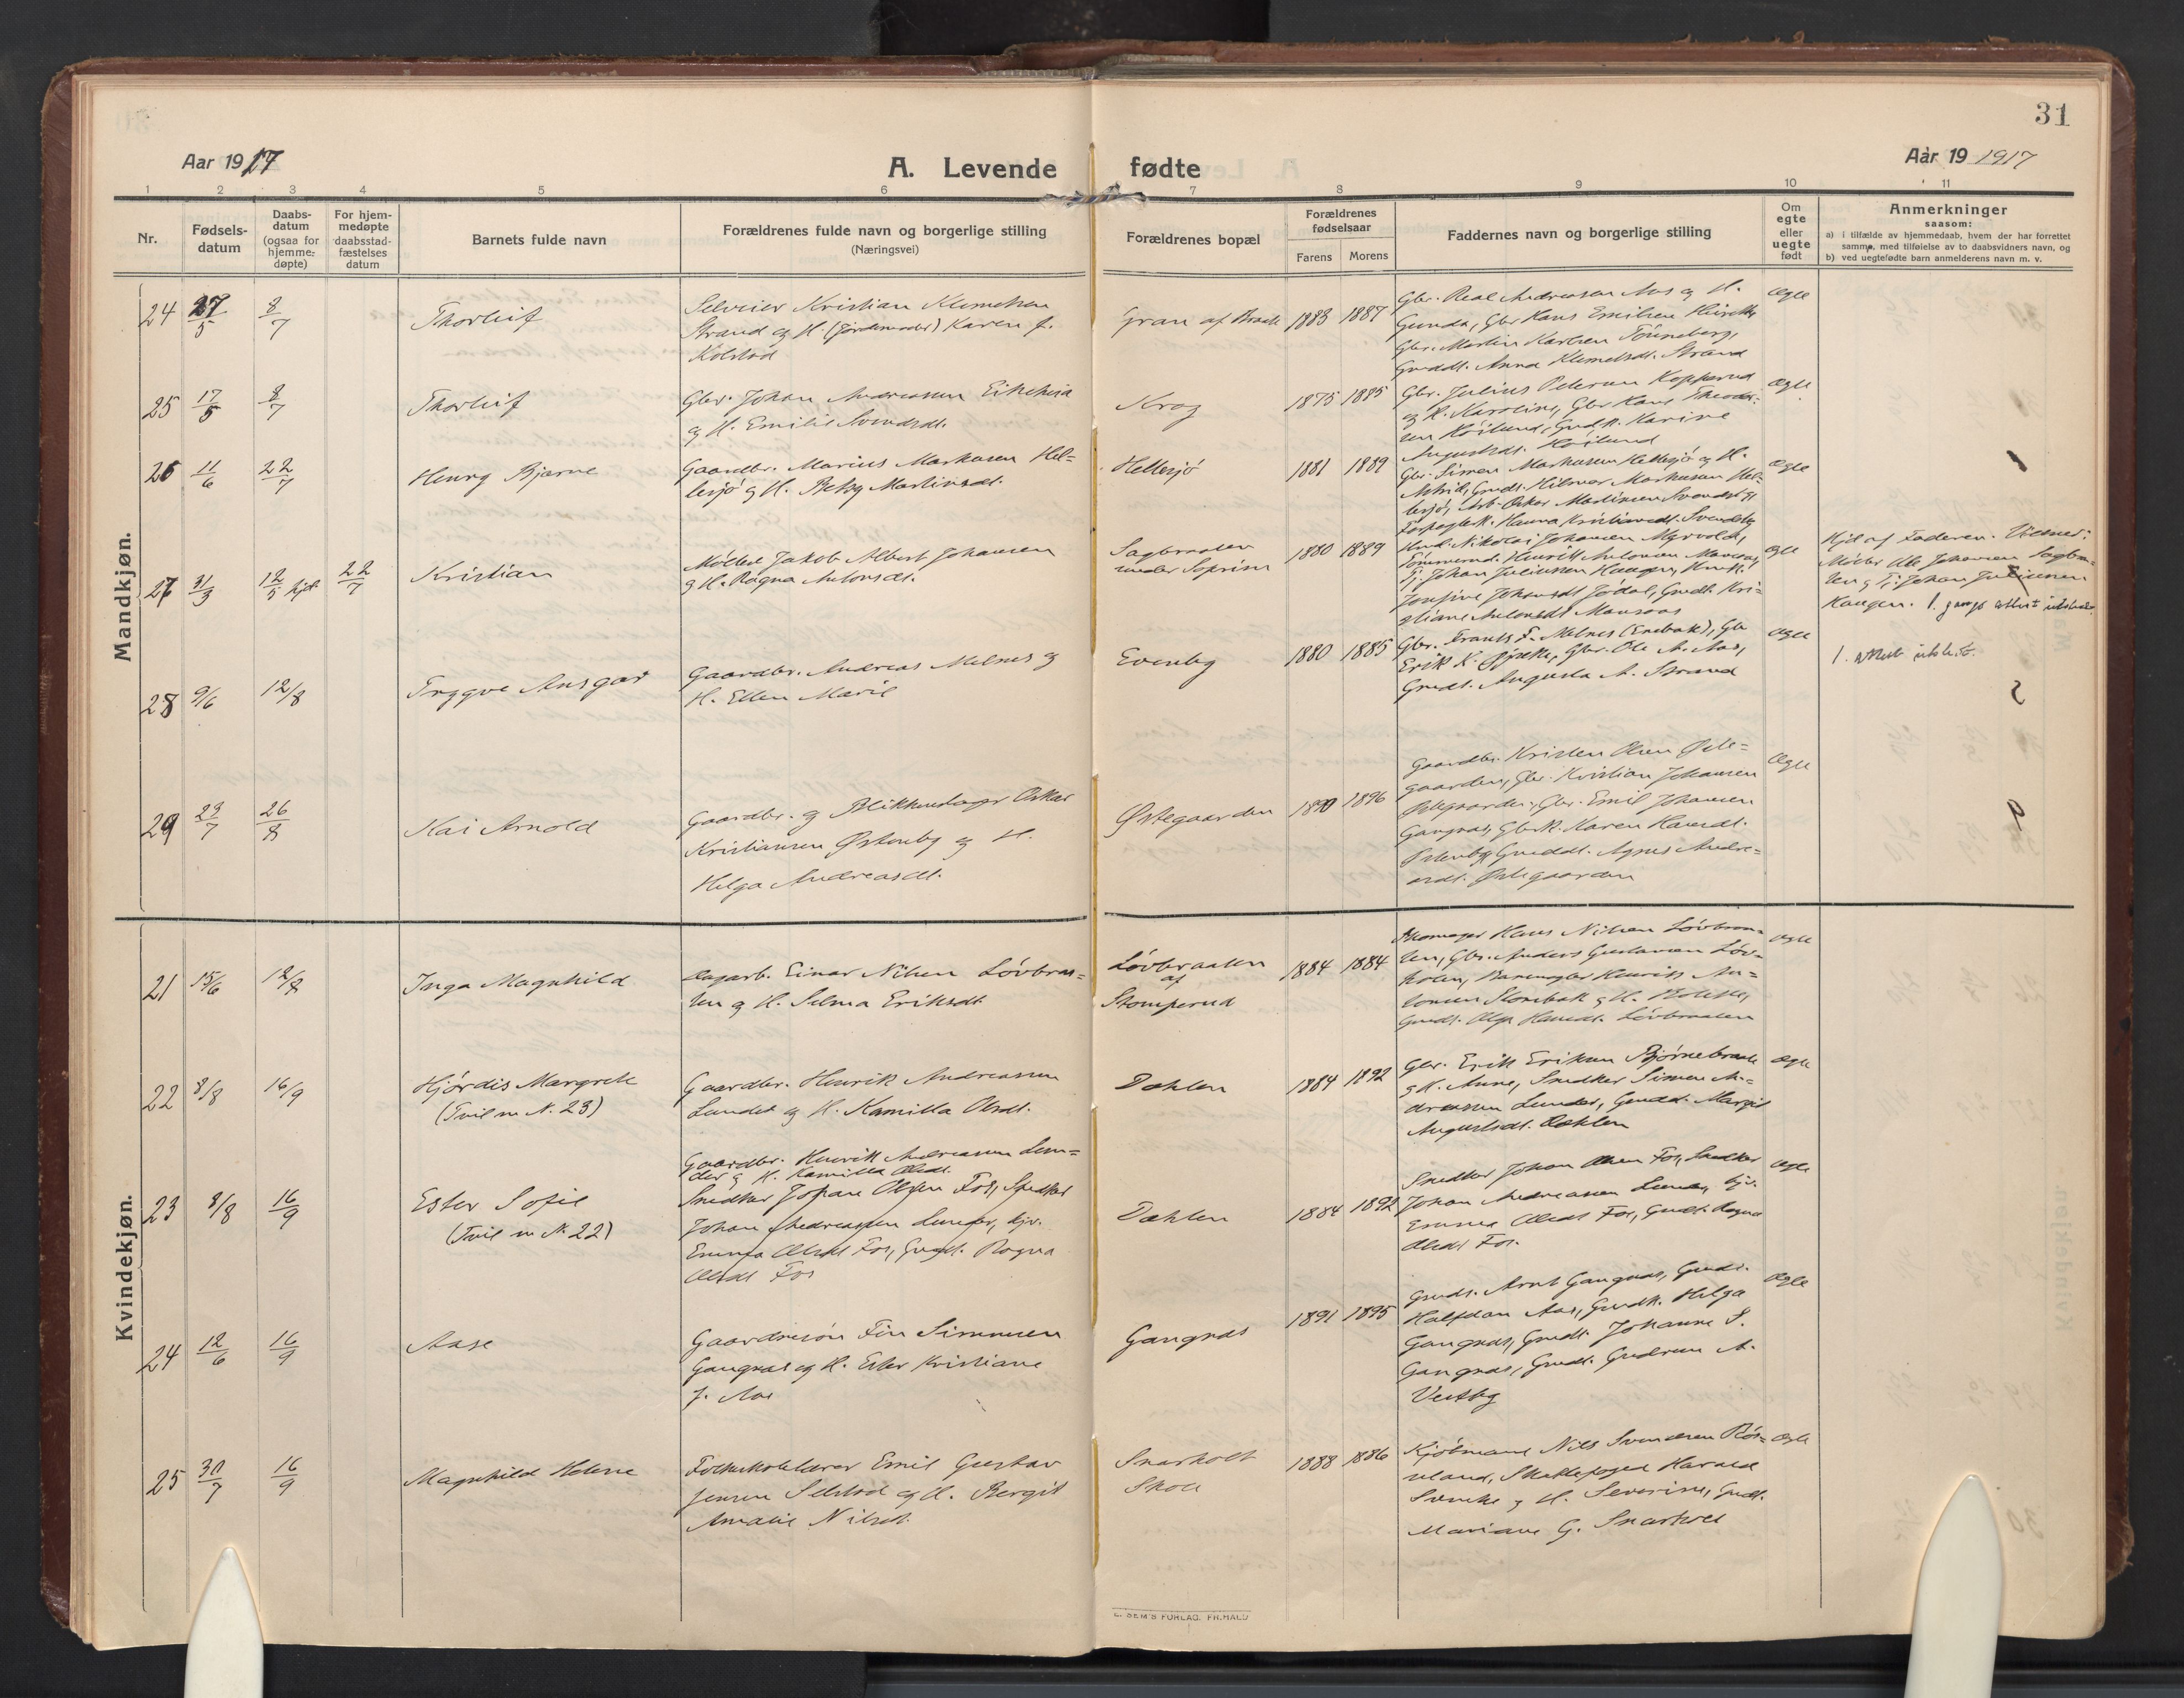 31
Aar 1917
A. Levende fødte
Aar 19 1917
1 2 3 4 5 6 7 8 9 10 11
Nr.
Fødsels-
datum
Daabs-
datum
(ogsaa for
hjemme-
døpte)
For hjem-
medøpte
daabsstad-
fæstelses
datum
Barnets fulde navn
Forældrenes fulde navn og borgerlige stilling
(Næringsvei)
Forældrenes bopæl
Forældrenes
fødselsaar
Farens Morens
Faddernes navn og borgerlige stilling
Om
egte
eller
uegte
født
Anmerkninger
saasom:
a) i tilfælde av hjemmedaab, hvem der har forrettet
samme, med tilføielse av to daabsvidners navn, og
b) ved uegtefødte barn anmelderens navn m. v.
Mandkjøn.
24 27/5 8/7 Thorleif
Selveier Kristian Klemetsen
Strand og H. (Jordemoder) Karen f.
Kolstad
Gran af Braate 1883 1887
Gbr. Real Andreassen Aas og H.
Gunda, Gbr Hans Emilsen
Gbr. Martin Karlsen Tönneberg,
Anna Klemetsdt. Strand
Ægte
25 17/5 8/7 Thorleif
Gbr. Johan Andreassen Eikeheia
og H. Emilie Svendsdt.
Krog 1875 1885
Gbr. Julius Petersen Kopperud
og H. Karoline, Gbr Karl Theodor-
sen Höilund, Karine
Augustsdt. Höilund
Ægte
26 11/6 22/7 Henry Bjarne
Gaardbr. Marius Markusen Hel-
lesjö og H. Betsy Martinsdt.
Hellesjö 1881 1889
Gbr. Simen Markusen Hellesjö og H.
Astrid, Hilmar Markusen Hel-
lesjö, Oskar Martinsen Svendsby
Hanna Kristiansdt. Svendsby
Ægte
27 31/3 12/5 hjd. 22/7 Kristian
Möller Jakob Albert Johansen
og H. Ragna Antonsdt.
Sagbraaten
under Soprim 1880 1889
Nikolai Johansen Myrvold,
Henrik Antonsen Mansaas,
Tj. Johan Juliussen Haugen,
Josefine Johansdt Jödal, Gmdt. Kri-
stiane Antonsdt Mansaas
Ægte
Hjd af Faderen. Vidner:
Möller Ole Johansen Sagbraa-
ten og Tj. Johan Juliussen
Haugen. 1. gangs attest utstedt.
28 9/6 12/8 Tryggve Ansgar
Gaardbr. Andreas Melnes og
H. Ellen Marie
Evenby 1880 1885
Gbr. Frants F. Melnes (Enebak), Gbr
Erik K. Gjælke, Gbr. Ole A. Aas,
Gmdt. Augusta A. Strand
Ægte
1. attest utstedt.
29 23/7 26/8 Kai Arnold
Gaardbr. og Blikkenslager Oskar
Kristiansen Østenby og H.
Helga Andreasdt.
Østegaarden 1890 1896
Gaardbr. Kristen Olsen Øste-
gaarden, Gbr. Kristian Johansen
Østegaarden, Gbr. Emil Johansen
Gangnæs, Karen Hansdt.
Østenby, Agnes Andre-
asdt. Østegaarden
Ægte
Kvindekjøn.
21 15/6 12/8 Inga Magnhild
Dagarb. Einar Nilsen Lövbraa-
ten og H. Selma Eriksdt
Lövbraaten
af
Stomperud
1884 1884
Skomager Hans Nilsen Lövbraa-
ten, Gbr. Anders Gustavsen Löv-
holen, Henrik An-
tonsen Storebak og H.
Gmdt. Olga Hansdt. Lövbraaten
Ægte
22 8/8 16/9 Hjördis Margrete
(Tvil m N. 23)
Gaardbr. Henrik Andreassen
Lunder og H. Kamilla Olsdt.
Dahlen 1884 1892
Gbr. Erik Eriksen Bjørnebraate
og H. Anne, Snedker Simen An-
dreassen Lunder, Gmdt. Margit
Augustsdt. Dahlen
Ægte
23 8/8 16/9 Ester Sofie
(Tvil m N. 22)
Gaardbr. Henrik Andreassen Lun-
der og H. Kamilla Olsdt.
Snedker Johan Olsen Fos, Snedker
Johan Andreassen Lunder, hjv.
Emma Olsdt Fos, Gmdt. Ragna
Olsdt Fos
Dahlen 1884 1892
Snedker Johan Olsen Fos, Snedker
Johan Andreassen Lunder, hjv.
Emma Olsdt Fos, Gmdt. Ragna
Olsdt Fos.
Ægte
24 12/6 16/9 Aase
Gaardmesön Fin Simensen
Gangnæs og H. Ester Kristiane
f. Aas
Gangnæs 1891 1895
Gmds. Arnt Gangnæs, Gmds.
Halfdan Aas, Helga
Gangnæs, Gmdt. Johanne S.
Gangnæs, Gmdt. Gudrun A.
Vestby
Ægte
25 30/7 16/9 Magnhild Helene
Folkeskolelærer Emil Gustav
Jensen Selstad og H. Bergit
Amalie Nilsdt.
Snarholt
Skole 1888 1886
Kjöbmand Nils Svendsen Rös-
Harald
og H. Severine, Gmdt.
Mariane G. Snarholt
Ægte
E. SEM'S FORLAG. FR.HALD